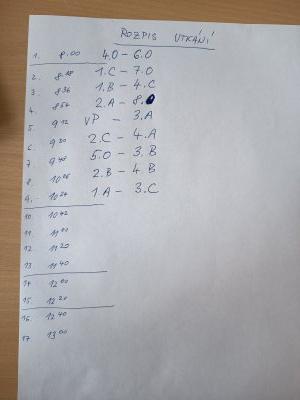 ROZPIS UTKÁNÍ
1. 8.00 4.O - 6.O
2. 8 18 1.C - 7.O
3. 8 36 1.B - 4.C
4. 8 54 2.A - 8.O
5. 9 12 VP - 3.A
6. 9 30 2.C - 4.A
7. 9 48 5.O - 3.B
8. 10 06 2.B - 4.B
9. 10 24 1.A - 3.C
10. 10 42
11. 11 00
12. 11 20
13. 11 40
14. 12 00
15. 12 20
16. 12 40
17. 13 00